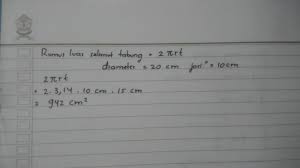 Rumus luas selimut tabung = 2πrt
diameter = 20 cm jari² = 10cm
2πrt
= 2 . 3,14 . 10 cm . 15 cm
= 942 cm²